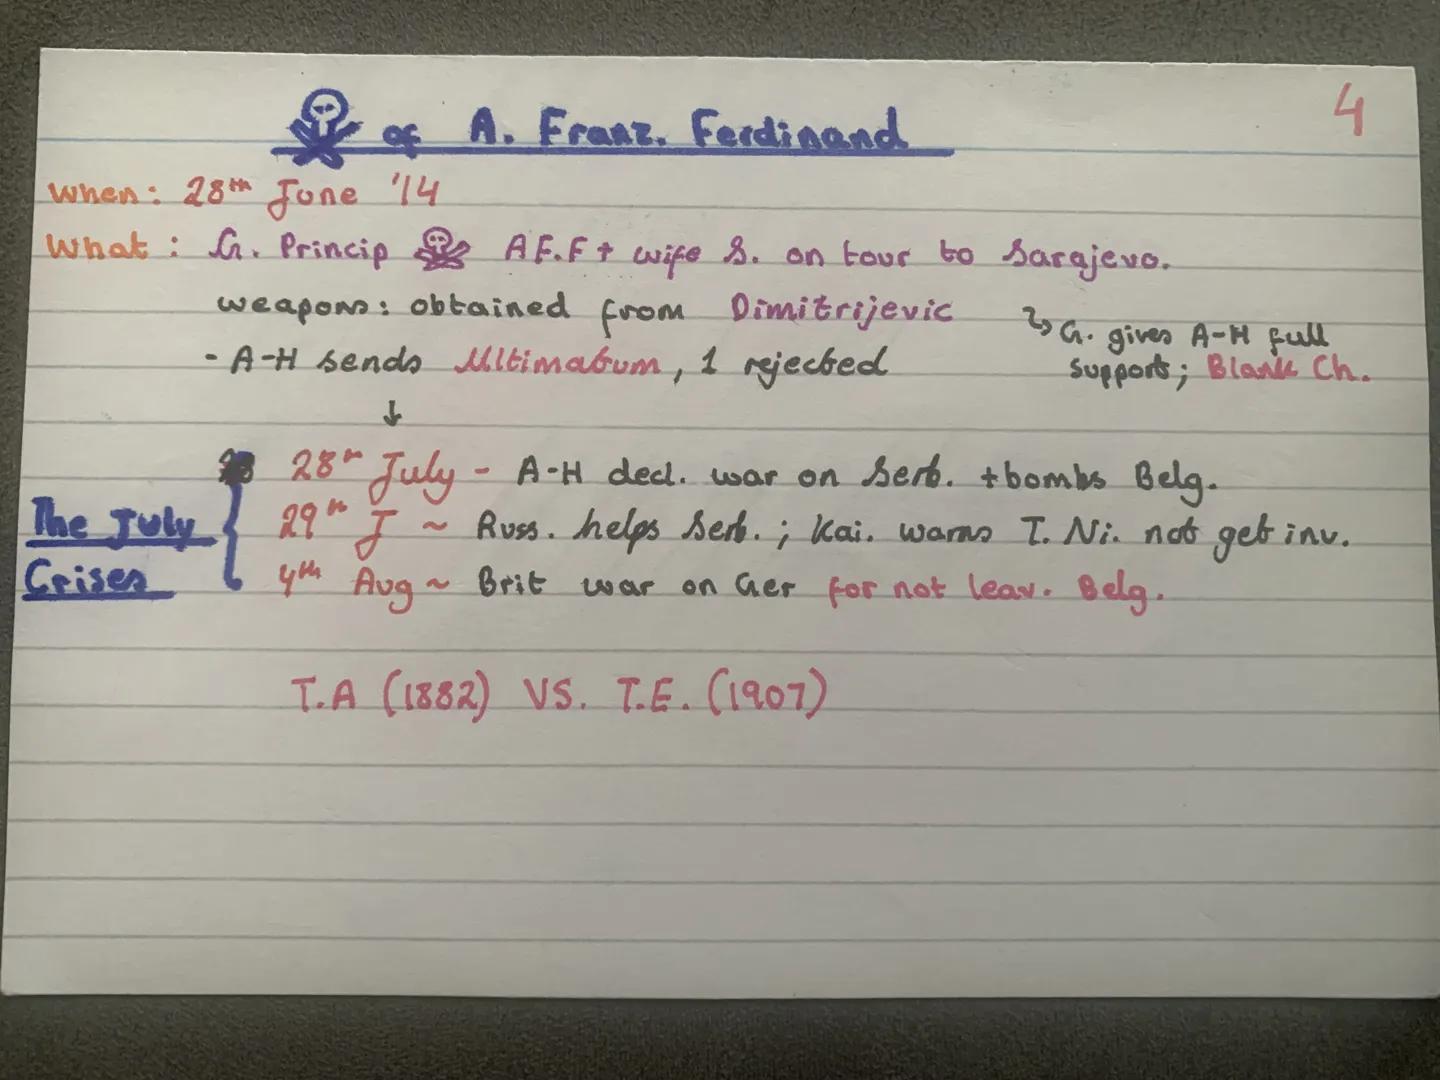 4
of A. Franz. Ferdinand
When: 28th June '14
What: G. Princip A F.F + wife S. on tour to Sarajevo.
weapons: obtained from Dimitrijevic
↳ G. gives A-H full
support; Blank Ch.
- A-H sends Ultimatum, 1 rejected
↓
28th July - A-H decl. war on Serb. + bombs Belg.
The July
Crises
29th J ~ Russ. helps Serb.; Kai. warns T. Ni. not get inv.
4th Aug ~ Brit war on Ger for not leav. Belg.
T.A (1882) VS. T.E. (1907)